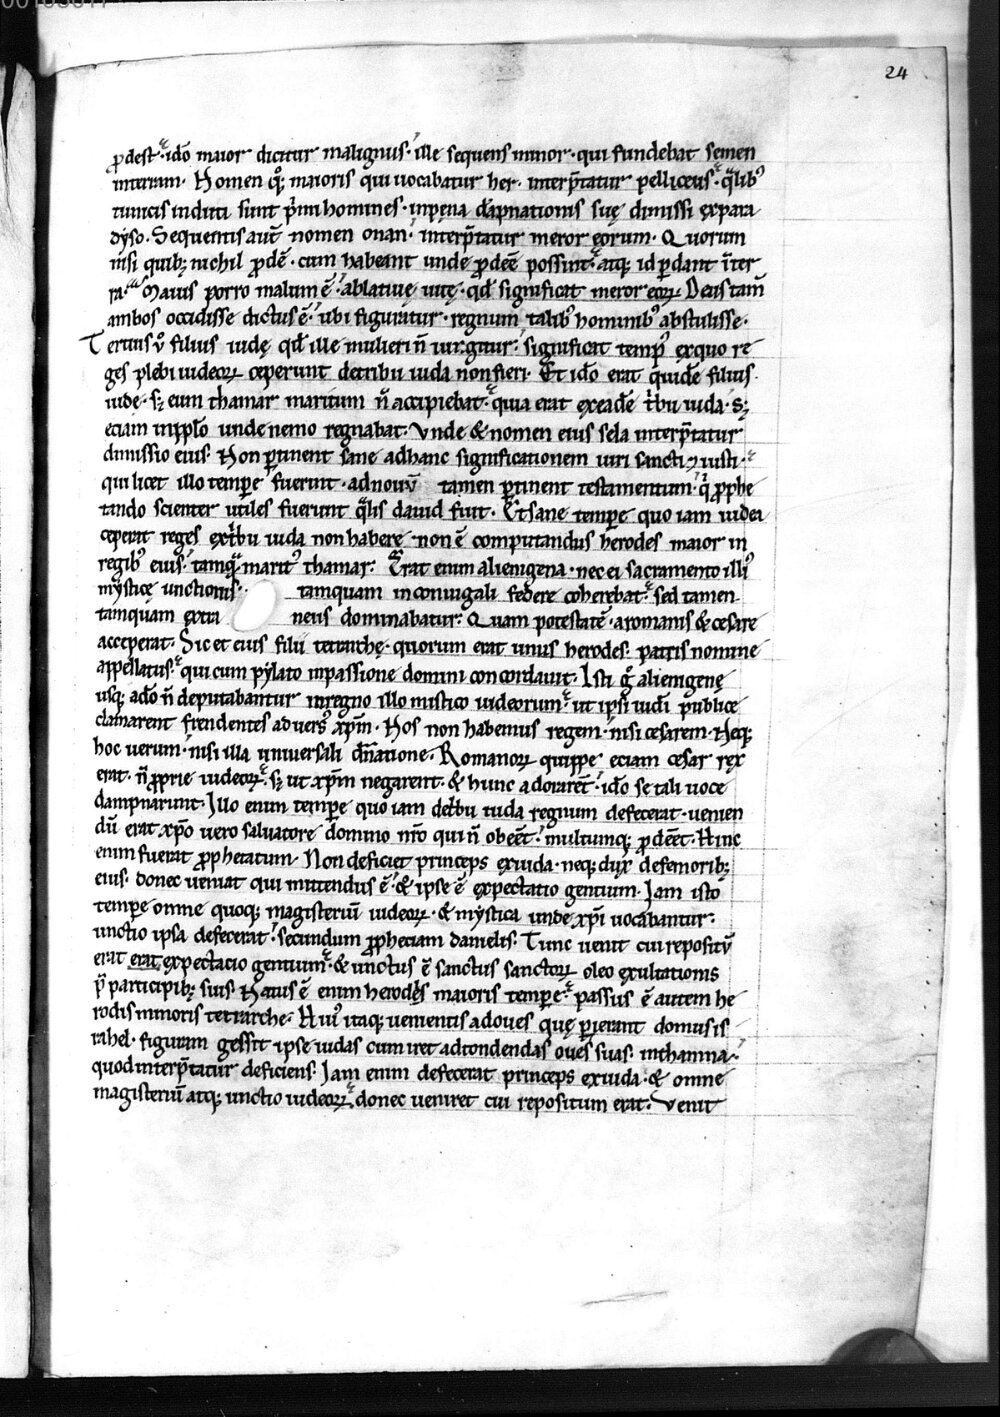 24
ꝓdest. idō maior dicitur malignus. ille sequens minor. qui fundebat semen
interram. Nomen qꝫ maioris qui uocabatur her. interp̄tatur pelliceus. q̄lib᷒
tunicis induti sunt p̄mi homines. inpęna dāpnationis suę dimissi expara
dyso. Sequentis aut̄ nomen onan. interp̄tatur meror eorum. Quorum
nisi quibꝫ nichil ꝓdē. cum habeant unde ꝓdeē possint. atqꝫ id ꝑdant īter
rā. Maius porro malum ē. ablatiue uitę. qd̄ significat meror eoꝝ. Deus tam̄
ambos occidisse dictus ē. ubi figuratur. regnum talib᷒ hominib᷒ abstulisse.
Tertius v̄ filius iudę qd̄ ille mulieri n̄ iurgitur. significat temp᷒ exquo re
ges plebi iudeoꝝ ceperunt detribu iuda non fieri. Et idō erat quidē filius
iude. sꝫ eum thamar maritum n̄ accipiebat. quia erat exeadē tribu iuda. sꝫ
eciam inpplo unde nemo regnabat. Vnde & nomen eius sela interp̄tatur
dimissio eius. Non ꝑtinent sane adhanc significationem uiri sancti ⁊ iusti.
qui licet illo temꝑe fuerint. ad nouū tamen ꝑtinent testamentum. q̄ ꝓphe
tando scienter utiles fuerunt q̄lis dauid fuit. Et sane temꝑe quo iam iudea
ceperat reges extribu iuda non habere. non ē computandus herodes maior in
regib᷒ eius. tamq̄ marit᷒ thamar. Erat enim alienigena. nec ei sacramento illi᷒
mysticę unctionis. tamquam inconiugali federe coherebat. sed tamen
tamquam extra neus dominabatur. Quam potestatē. aromanis & cesare
acceperat. Sic et eius filii tetrarchę. quorum erat unus herodes. patris nomine
appellatus. qui cum pylato inpassione domini concordauit. Isti g̊ alienigenę
usqꝫ adō n̄ deputabantur inregno illo mistico iudeorum. ut ipsi iudei publice
clamarent frendentes aduers᷒ xp̄m. Nos non habemus regem. nisi cesarem. Neqꝫ
hoc uerum. nisi illa uniuersali dn̄atione. Romanoꝝ quippe eciam cesar rex
erat. n̄ ꝓprie iudeoꝝ. sꝫ ut xp̄m negarent. & hunc adorarēt. idō se tali uoce
dampnarunt. Illo enim temꝑe quo iam detbu iuda regnum defecerat. uenien
dū erat xp̄o uero saluatore domino nr̄o qui n̄ obeēt. multumqꝫ ꝓdeēt. Hinc
enim fuerat ꝓphetatum. Non deficiet princeps exiuda. neqꝫ dux defemoribꝫ
eius. donec ueniat qui mittendus ē. & ipse ē expectatio gentium. Iam isto
temꝑe omne quoqꝫ magisteriū iudeoꝝ. & mystica unde xp̄i uocabantur.
unctio ipsa defecerat. secundum ꝓpheciam danielis. Tunc uenit cui repositū
erat erat expectacio gentium. & unctus ē sanctus sanctoꝝ oleo exultationis
p̄ participibꝫ suis. Natus ē enim herodes maioris temꝑe. passus ē autem he
rodis minoris tetrarche. Hui᷒ itaqꝫ uenientis adoues quę ꝑierant domus is
rahel. figuram gessit ipse iudas cum iret adtondendas oues suas. inthamna.
quod interp̄tatur deficiens. Iam enim defecerat princeps exiuda. & omne
magisteriū atqꝫ unctio iudeoꝝ. donec ueniret cui repositum erat. Venit